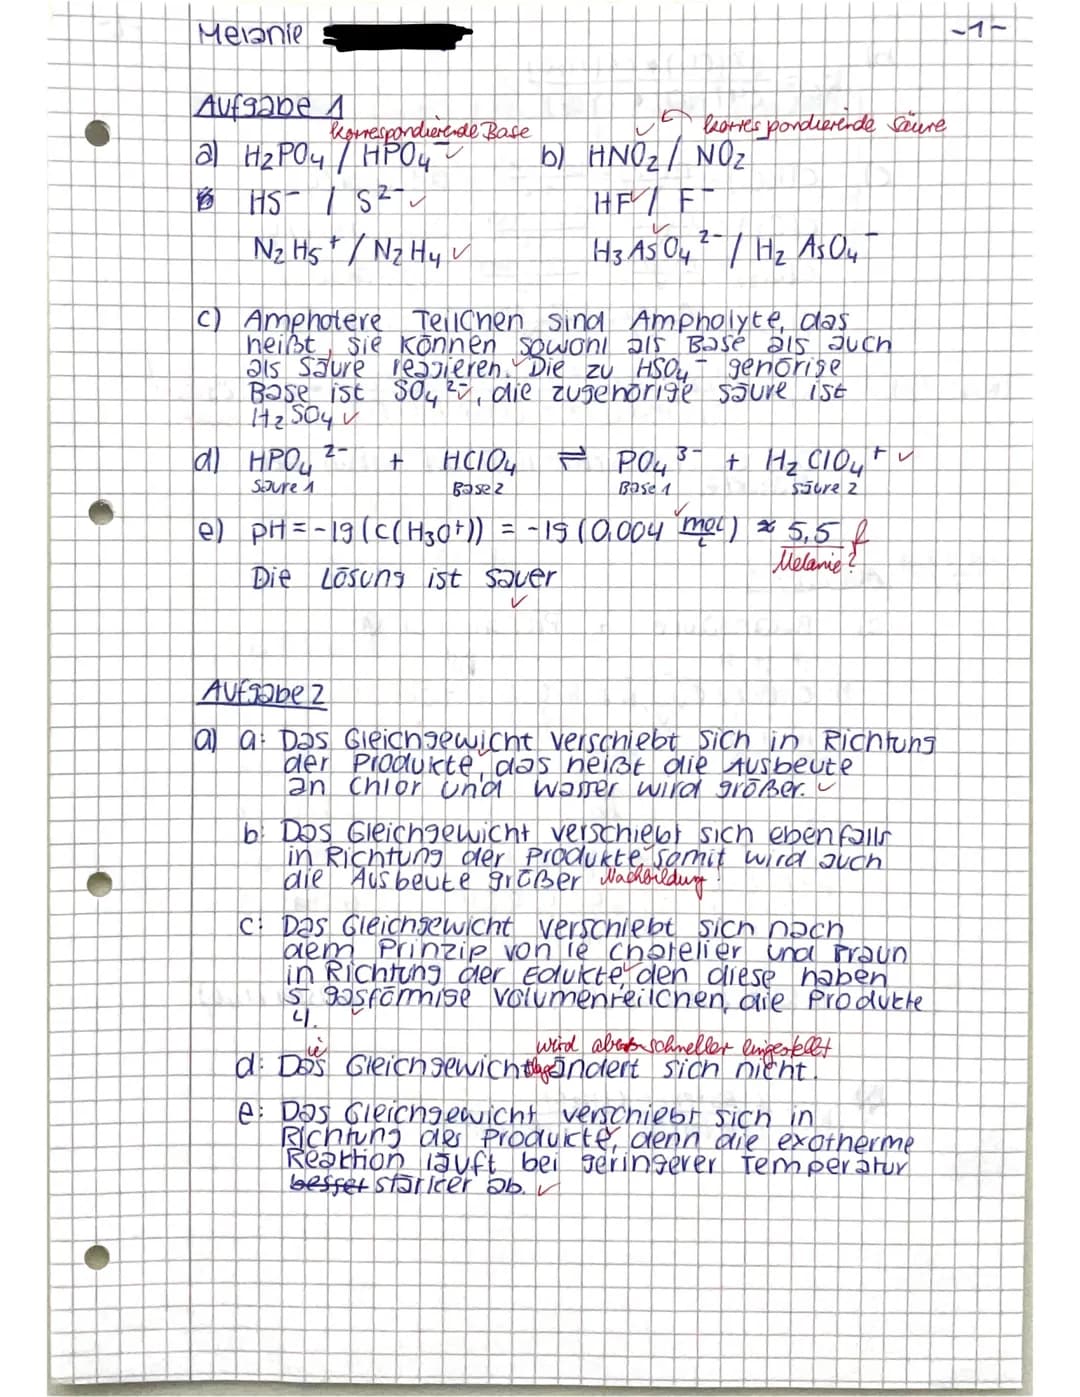 Melanie
-1-
Aufgabe 1
korrespondierende Base
korrespondierende Säure
a) H2PO4 / HPO4⁻ ✓
b) HNO2 / NO2
HS⁻ / S²⁻ ✓
HF / F⁻
N2H5⁺ / N2H4 ✓
H3AsO4²⁻ / H2AsO4⁻
c) Amphotere Teilchen sind Ampholyte, das
heißt, sie können sowohl als Base als auch
als Säure reagieren. Die zu HSO4⁻ gehörige
Base ist SO4²⁻, die zugehörige säure ist
H2SO4 ✓
d) HPO4²⁻ + HClO4 ⇌ PO4³⁻ + H2ClO4⁺ ✓
Säure 1 Base 2 Base 1 säure 2
e) pH = -lg(c(H3O⁺)) = -lg(0,004 mol/L) ≈ 5,5 f
Melanie?
Die Lösung ist sauer
Aufgabe 2
a) a: Das Gleichgewicht verschiebt sich in Richtung
der Produkte, das heißt die Ausbeute
an Chlor und Wasser wird größer. ✓
b: Das Gleichgewicht verschiebt sich ebenfalls
in Richtung der Produkte somit wird auch
die Ausbeute größer Nachbildung!
c: Das Gleichgewicht verschiebt sich nach
dem Prinzip von le chatelier und Braun
in Richtung der Edukte, den diese haben
5 gasförmige Volumenteilchen, die Produkte
4.
ie wird aber schneller eingestellt
d: Das Gleichgewicht ändert sich nicht.
e: Das Gleichgewicht verschiebt sich in
Richtung des Produkte, denn die exotherme
Reaktion läuft bei geringerer Temperatur
besser stärker ab. ✓